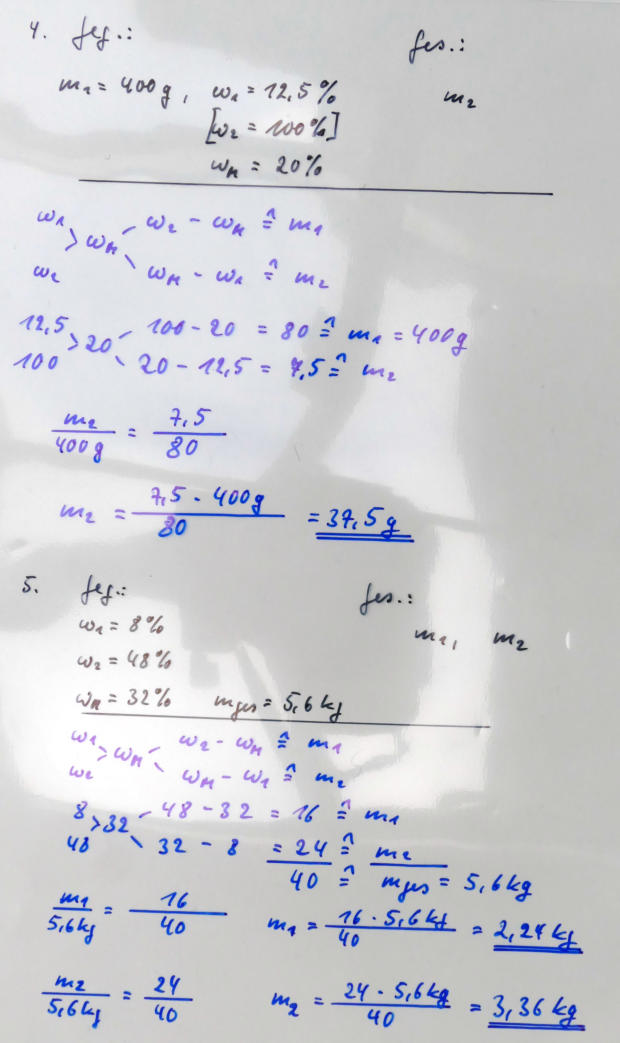 4. geg.: ges.:
m₁ = 400 g, ω₁ = 12,5 % m₂
[ω₂ = 100 %]
ω_M = 20 %
ω₁ > ω_M ω₂ - ω_M ≙ m₁
ω₂ ω_M - ω₁ ≙ m₂
12,5 > 20 100 - 20 = 80 ≙ m₁ = 400 g
100 20 - 12,5 = 7,5 ≙ m₂
m₂ / 400 g = 7,5 / 80
m₂ = 7,5 · 400 g / 80 = 37,5 g
5. geg.: ges.:
ω₁ = 8 % m₁, m₂
ω₂ = 48 %
ω_M = 32 % m_ges = 5,6 kg
ω₁ > ω_M ω₂ - ω_M ≙ m₁
ω₂ ω_M - ω₁ ≙ m₂
8 > 32 48 - 32 = 16 ≙ m₁
48 32 - 8 = 24 ≙ m₂
40 ≙ m_ges = 5,6 kg
m₁ / 5,6 kg = 16 / 40 m₁ = 16 · 5,6 kg / 40 = 2,24 kg
m₂ / 5,6 kg = 24 / 40 m₂ = 24 · 5,6 kg / 40 = 3,36 kg